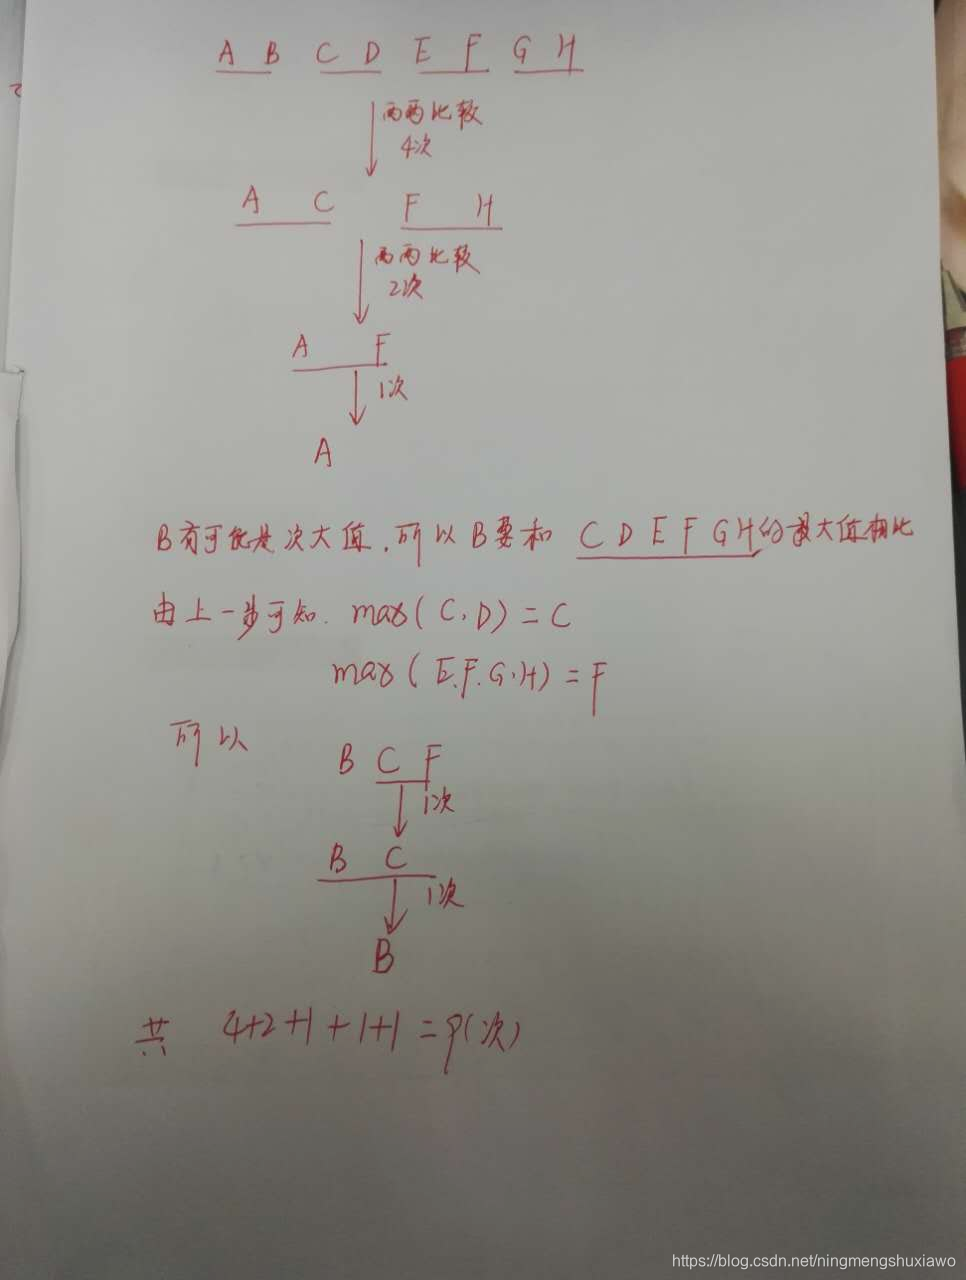 A B C D E F G H
两两比较
4次
A C F H
两两比较
2次
A F
1次
A
B有可能是次大值,所以B要和 C D E F G H的最大值相比
由上一步可知. max(C,D)=C
max(E.F.G.H)=F
所以
B C F
1次
B C
1次
B
共 4+2+1+1+1=9(次)
https://blog.csdn.net/ningmengshuxiawo